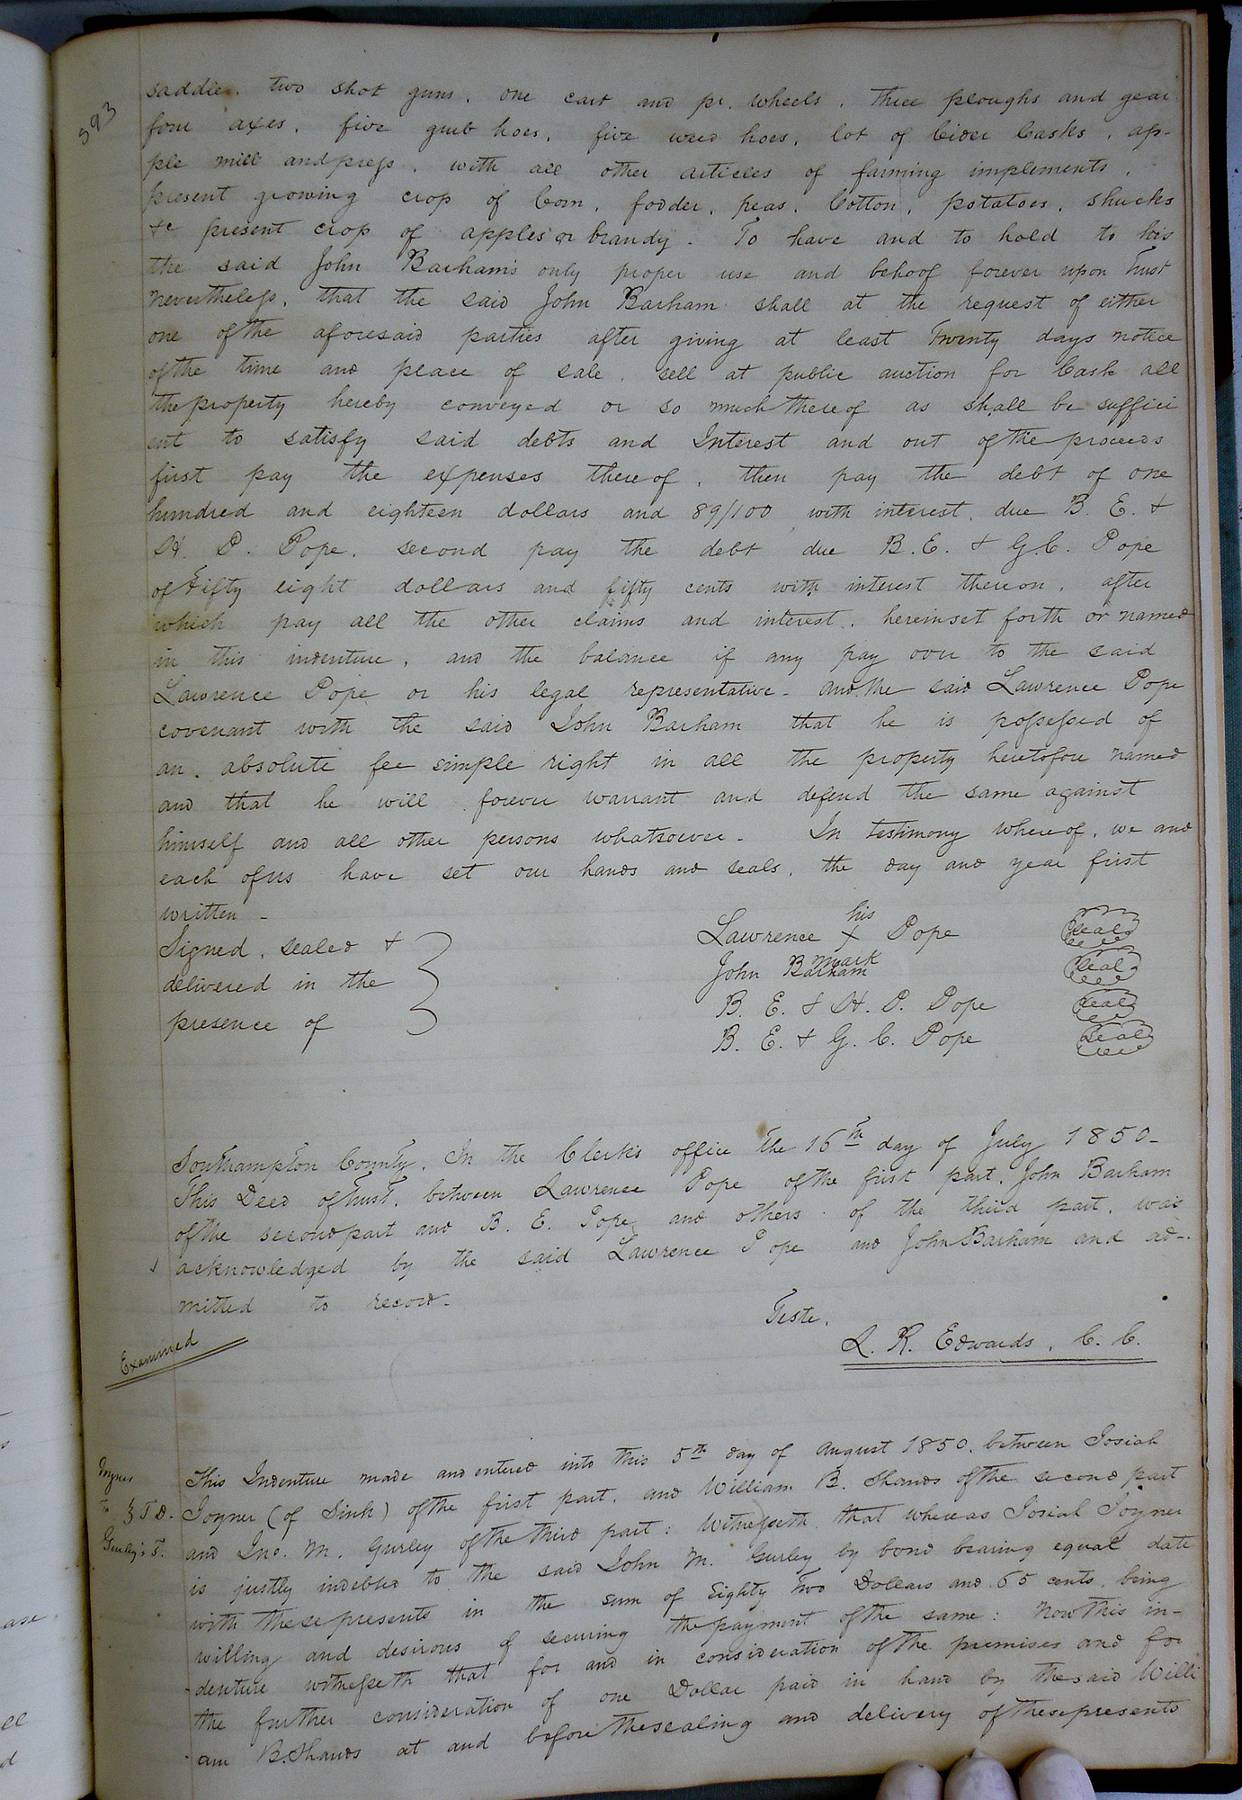 593
saddle, two shot guns, one cart and pr. wheels, three ploughs and gear
four axes, five grub hoes, five weed hoes, lot of Cider Casks, ap-
ple mill and press, with all other articles of farming implements,
present growing crop of Corn, fodder, peas, Cotton, potatoes, shucks
&c present crop of apples or brandy - To have and to hold to his
the said John Barham's only proper use and behoof forever upon Trust
nevertheless, that the said John Barham shall at the request of either
one of the aforesaid parties after giving at least Twenty days notice
of the time and place of sale, sell at public auction for Cash all
the property hereby conveyed or so much thereof as shall be suffici
ent to satisfy said debts and Interest and out of the proceeds
first pay the expenses thereof, then pay the debt of one
hundred and eighteen dollars and 89/100 with interest, due B. E. &
H. P. Pope, second pay the debt due B. E. & G. C. Pope
of Fifty eight dollars and fifty cents with interest thereon, after
which pay all the other claims and interest, herein set forth or named
in this indenture, and the balance if any pay over to the said
Lawrence Pope or his legal representative - and the said Lawrence Pope
covenant with the said John Barham that he is possessed of
an absolute fee simple right in all the property heretofore named
and that he will forever warrant and defend the same against
himself and all other persons whatsoever - In testimony whereof, we and
each of us have set our hands and seals, the day and year first
written -
Signed, sealed &
delivered in the
presence of
his
Lawrence X Pope Seal
mark
John Barham Seal
B. E. & H. P. Pope Seal
B. E. & G. C. Pope Seal
Southampton County, In the Clerk's office the 16th day of July 1850 -
This Deed of Trust, between Lawrence Pope of the first part, John Barham
of the second part and B. E. Pope and others of the third part, was
acknowledged by the said Lawrence Pope and John Barham and ad-
mitted to record -
Teste,
L. R. Edwards, C. C.
Examined
Joyner
to } T. D.
Gurley's T.
This Indenture made and entered into this 5th day of August 1850, between Josiah
Joyner (of Sink) of the first part, and William B. Shands of the second part
and Jno. M. Gurley of the third part: Witnesseth that whereas Josiah Joyner
is justly indebted to the said John M. Gurley by bond bearing equal date
with these presents in the sum of Eighty Two Dollars and 65 cents, being
willing and desirous of securing the payment of the same: Now this in-
denture witnesseth that for and in consideration of the premises and for
the further consideration of one Dollar paid in hand by the said Willi
am B. Shands at and before the sealing and delivery of these presents